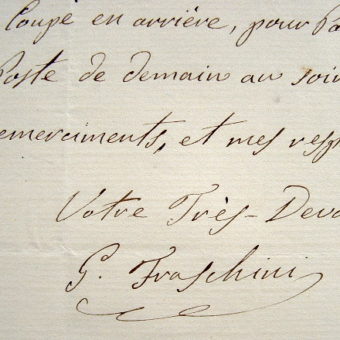 Coupé en arrière, pour Pa
Poste de demain au soir
emerciments, et mes resp
Votre Très-Devo
G. Fraschini